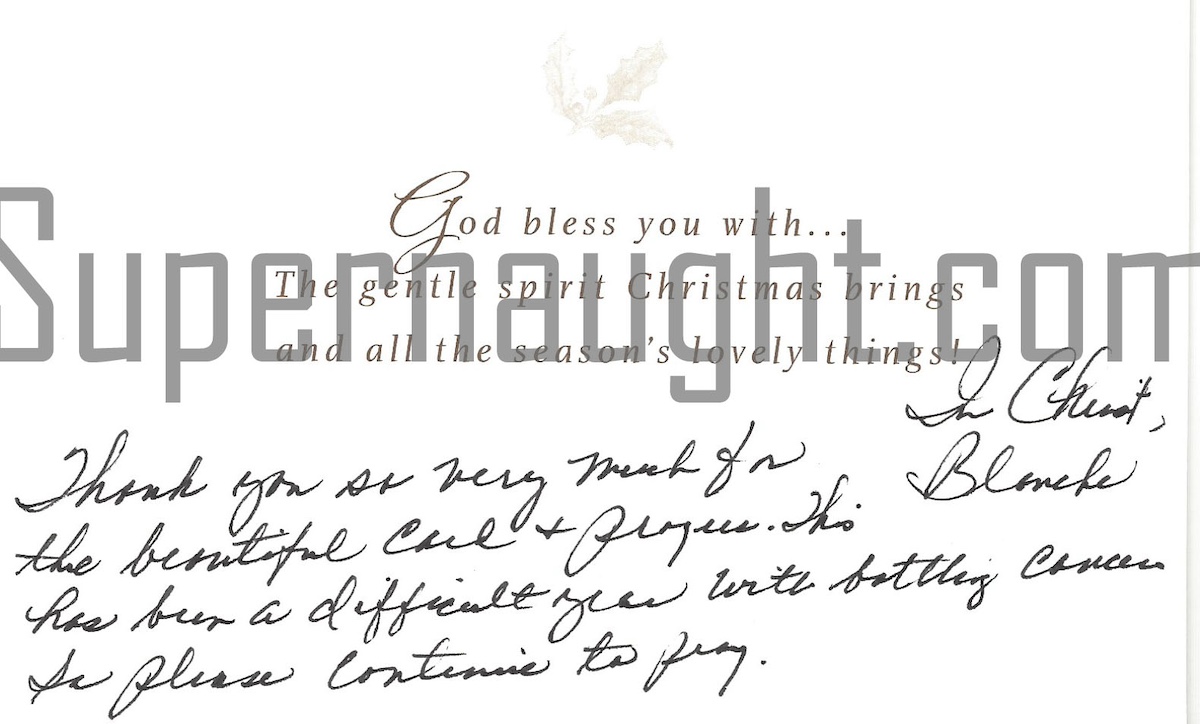 God bless you with...
Supernaught.com
The gentle spirit Christmas brings
and all the season's lovely things!
In Christ,
Blanche
Thank you so very much for
the beautiful card + prayers. This
has been a difficult year with battling cancer
So please continue to pray.